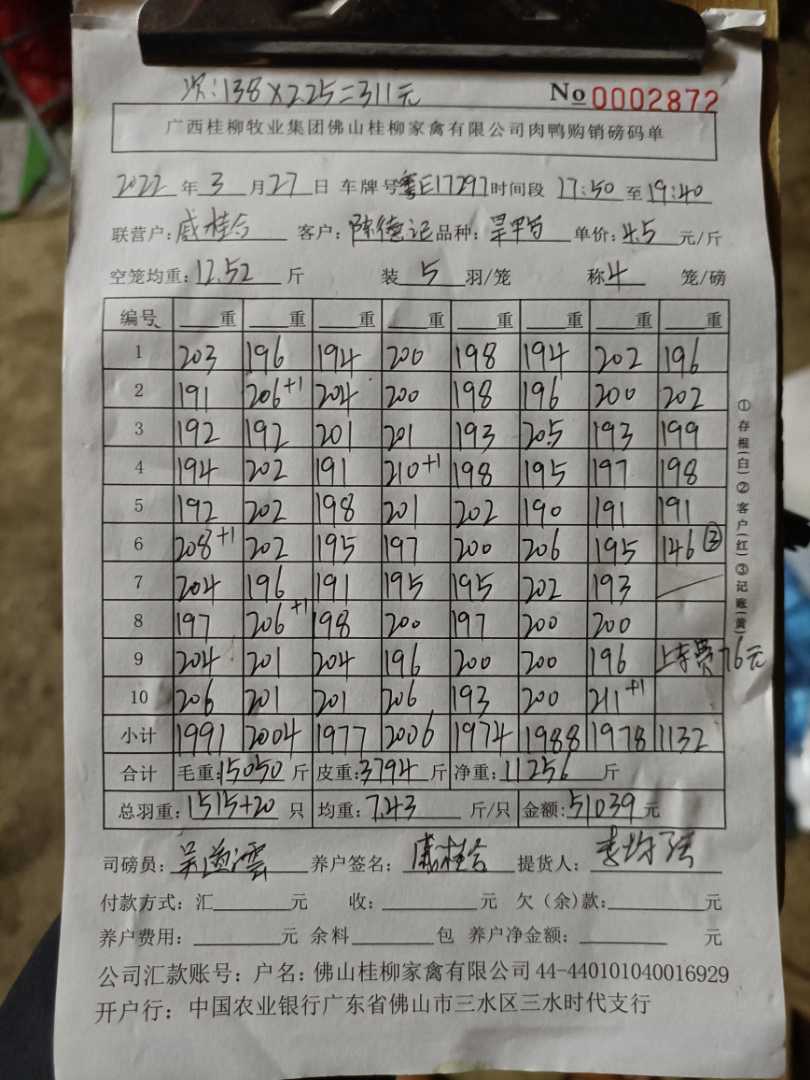 次:138×2.25=311元
No 0002872
广西桂柳牧业集团佛山桂柳家禽有限公司肉鸭购销磅码单
2022年3月27日 车牌号粤E17297时间段 17:50至19:40
联营户:戚桂合 客户:陈德记品种: 单价:4.5元/斤
空笼均重:12.52斤 装5羽/笼 称4笼/磅
编号 重 重 重 重 重 重 重 重
1 203 196 194 200 198 194 202 196
2 191 206+1 204 200 198 196 200 202
3 192 192 201 201 193 205 193 199
4 194 202 191 210+1 198 195 197 198
5 192 202 198 201 202 190 191 191
6 208+1 202 195 197 200 206 195 146③
7 204 196 191 195 195 202 193
8 197 206+1 198 200 197 200 200
9 204 201 204 196 200 200 196 上车费76元
10 206 201 201 206 193 200 211+1
小计 1991 2004 1977 2006 1974 1988 1978 1132
合计 毛重:15050斤 皮重:3794斤 净重:11256斤
总羽重:1515+20只 均重:7.43斤/只 金额:51039元
司磅员: 养户签名:戚桂合 提货人:
付款方式:汇 元 收: 元 欠(余)款: 元
养户费用: 元 余料 包 养户净金额: 元
公司汇款账号:户名:佛山桂柳家禽有限公司44-440101040016929
开户行:中国农业银行广东省佛山市三水区三水时代支行
①存根(白)②客户(红)③记账(黄)